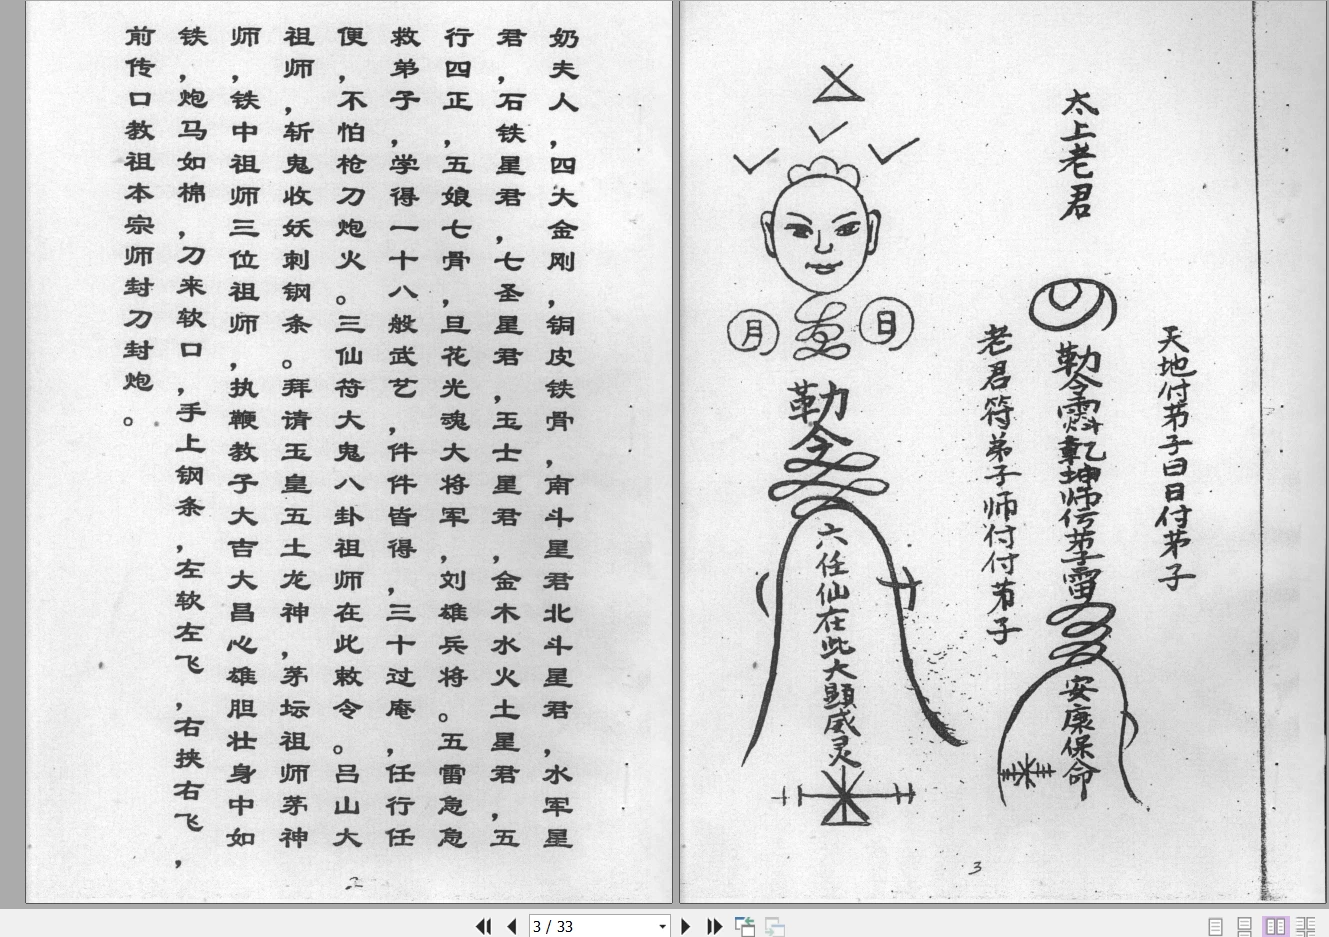 奶夫人，四大金刚，铜皮铁骨，南斗星君北斗星君，水军星
君，石铁星君，七圣星君，玉士星君，金木水火土星君，五
行四正，五娘七骨，旦花光魂大将军，刘雄兵将。五雷急急
救弟子，学得一十八般武艺，件件皆得，三十过庵，任行任
便，不怕枪刀炮火。三仙符大鬼八卦祖师在此敕令。吕山大
祖师，斩鬼收妖刺钢条。拜请玉皇五土龙神，茅坛祖师茅神
师，铁中祖师三位祖师，执鞭教子大吉大昌心雄胆壮身中如
铁，炮马如棉，刀来软口，手上钢条，左软左飞，右挟右飞，
前传口教祖本宗师封刀封炮。
2
天地付弟子日日付弟子
太上老君
勒令乾坤师付弟子雷
安康保命
老君符弟子师付付弟子
日
月
勒令
六任仙在此大顕威灵
3
3 / 33